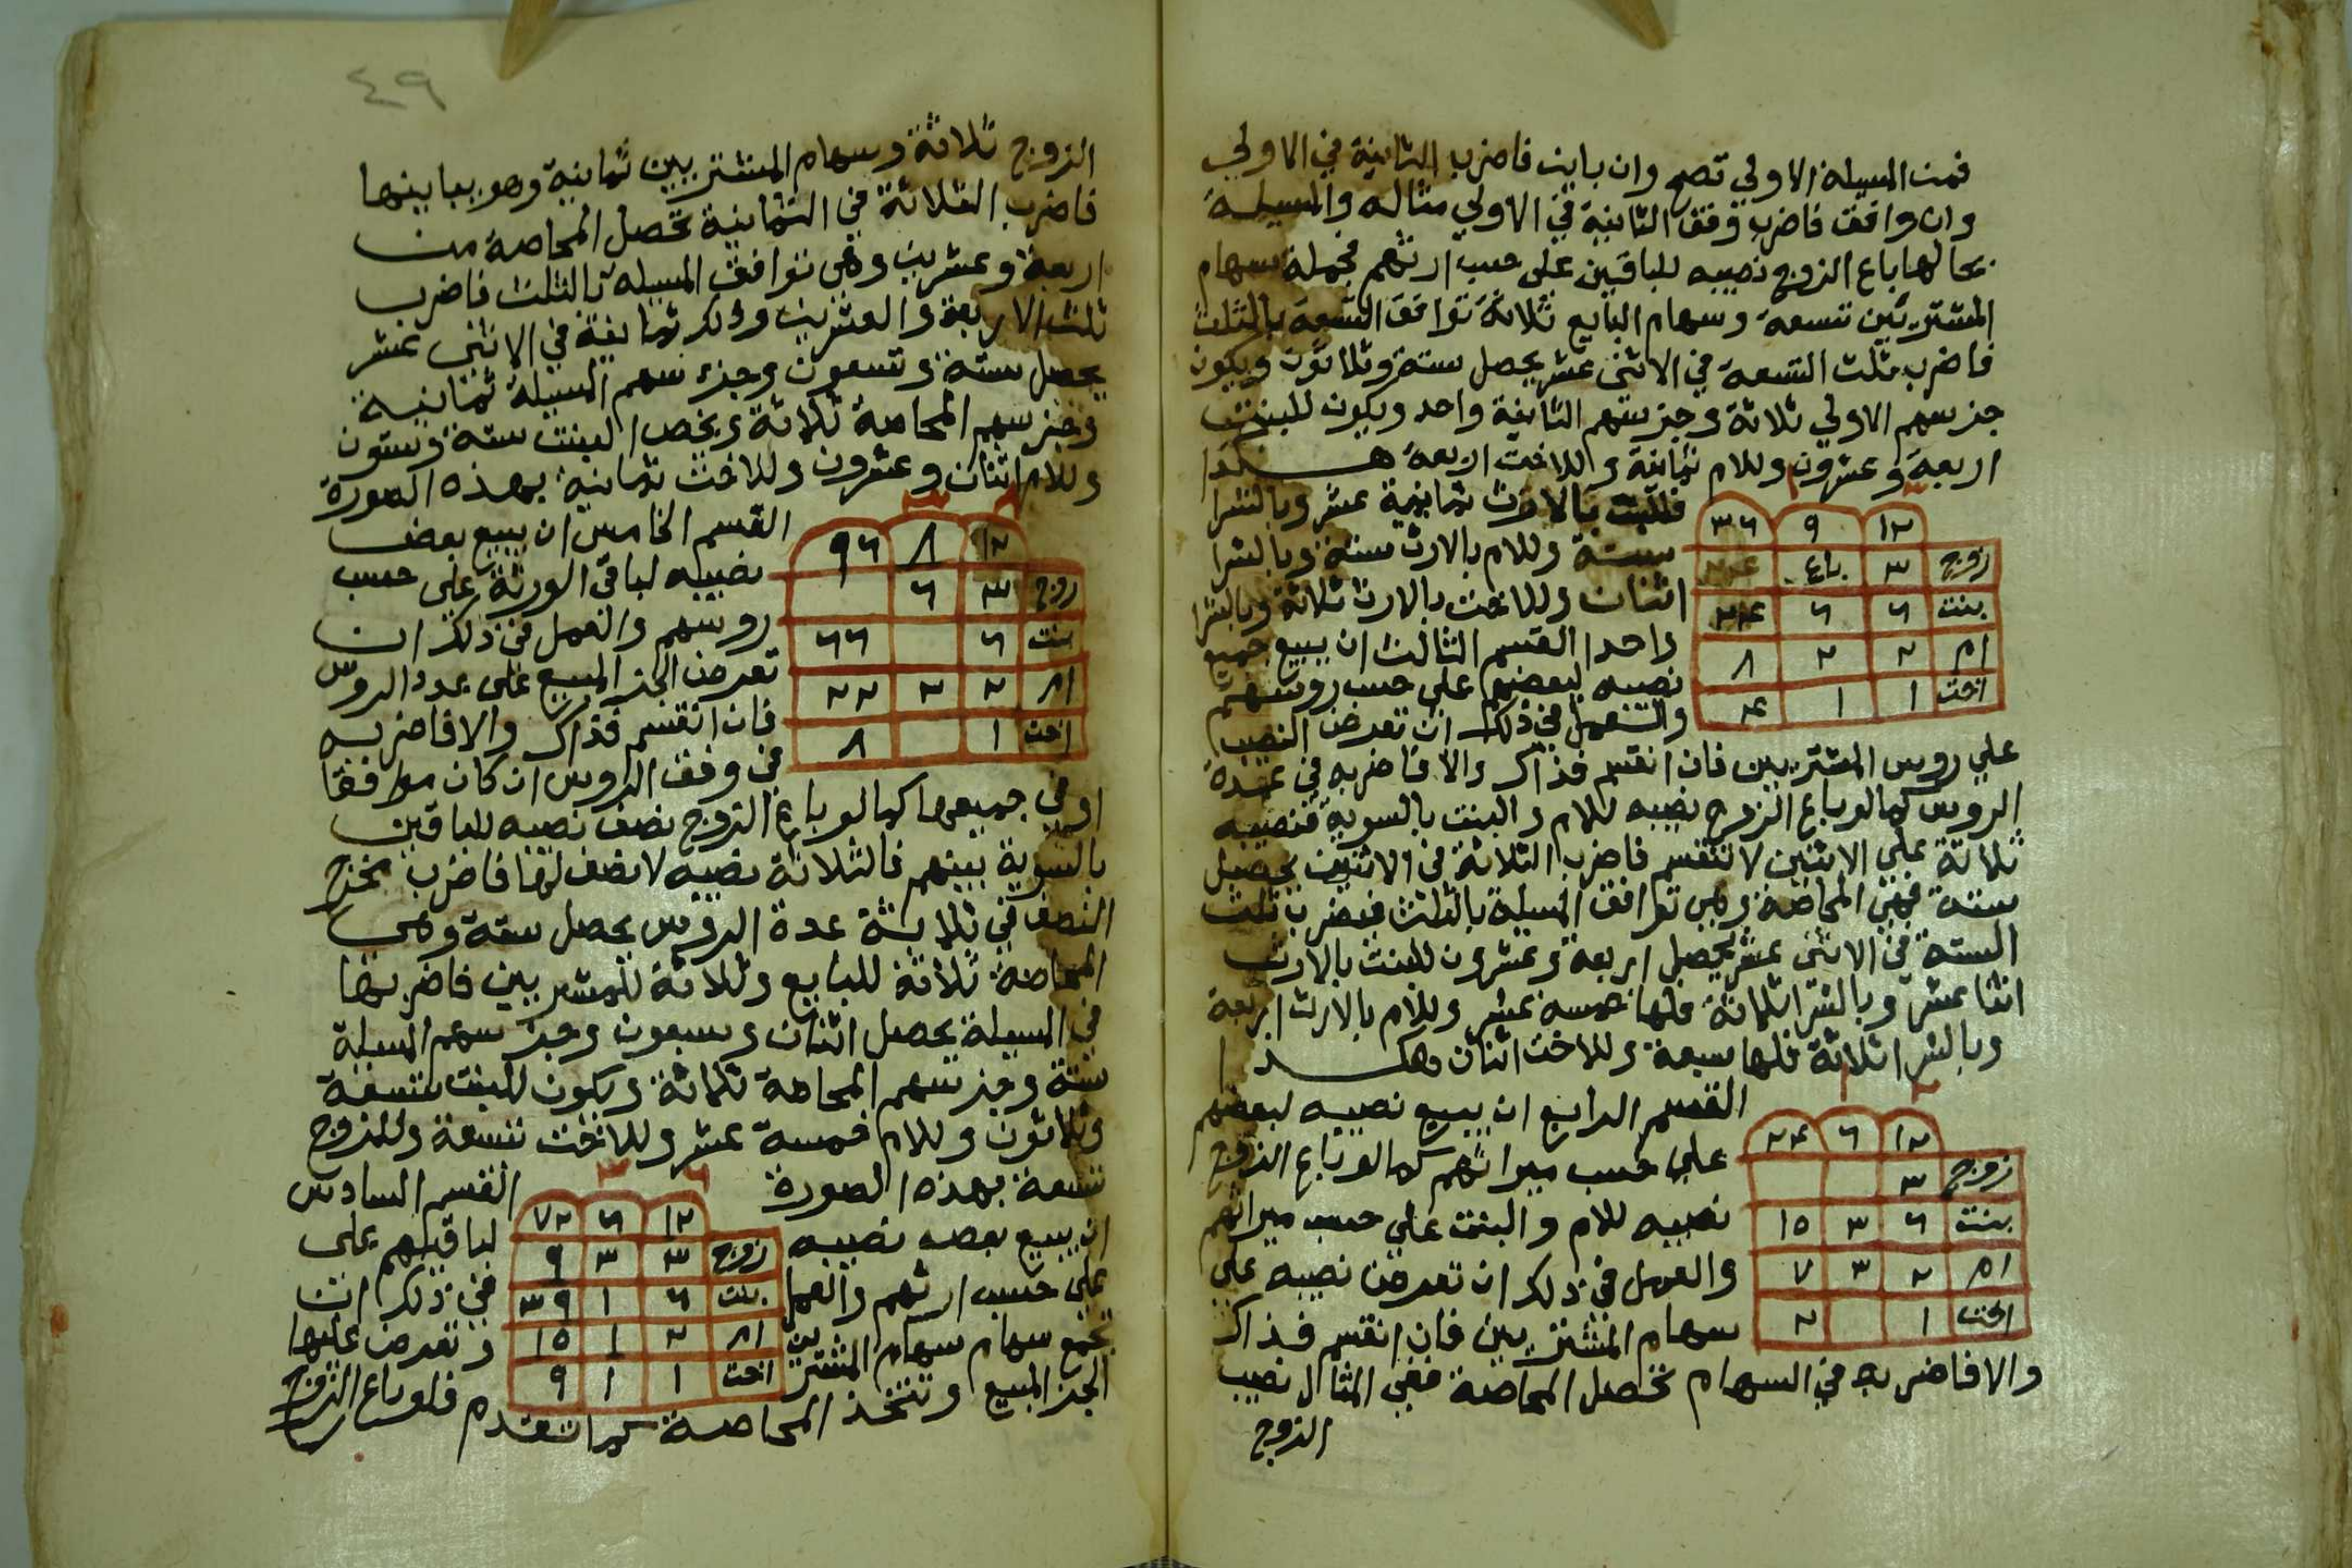 فمن المسيلة الاولي تصح وان باين فاضرب الثانية في الاولي
وان وافق فاضرب وفق الثانية في الاولي مثاله والمسيلة
بحالها باع الزوج نصيبه للباقين على حسب ارثهم فجملة سهام
المشتريين تسعة وسهام البايع ثلاثة توافق التسعة بالثلث
فاضرب ثلث التسعة في الاثنى عشر يحصل ستة وثلاثون ويكون
جز سهم الاولي ثلاثة وجز سهم الثانية واحد ويكون للبنت
اربعة وعشرون وللام ثمانية وللاخت اربعة هكذا
فللبنت بالارث ثمانية عشر وبالشرا
ستة وللام بالارث ستة وبالشرا
اثنان وللاخت بالارث ثلاثة وبالشرا
واحد القسم الثالث ان يبيع جميع
نصيبه لبعضهم على حسب روسهم
والعمل في ذلك ان تعرض النصيب
١٢ ٩ ٣٦
زوج ٣ باع
بنت ٦ ٦ ٢٤
ام ٢ ٢ ٨
اخت ١ ١ ٤
علي روس المشتريين فان انقسم فذاك والا فاضربه في عدة
الروس كما لو باع الزوج نصيبه للام والبنت بالسوية فنصيبه
ثلاثة علي الاثنين لا تنقسم فاضرب الثلاثة في الاثنين يحصل
ستة فهي المحاصة وهي توافق المسيلة بالثلث فيضرب ثلث
الستة في الاثنى عشر يحصل اربعة وعشرون للبنت بالارث
اثنا عشر وبالشرا ثلاثة فلها خمسة عشر وللام بالارث اربعة
وبالشرا ثلاثة فلها سبعة وللاخت اثنان وهكذا
القسم الرابع ان يبيع نصيبه لبعضهم
علي حسب ميراثهم كما لو باع الزوج
نصيبه للام والبنت علي حسب ميراثهم
والعمل في ذلك ان تعرض نصيبه علي
سهام المشتريين فان انقسم فذاك
١٢ ٦ ٢٤
زوج ٣
بنت ٦ ٣ ١٥
ام ٢ ٣ ٧
اخت ١ ٢
والا فاضربه في السهام تحصل المحاصة ففي المثال نصيب
الزوج
٤٩
الزوج ثلاثة وسهام المشتريين ثمانية وهو يباينها
فاضرب الثلاثة في الثمانية تحصل المحاصة من
اربعة وعشرين وهي توافق المسيلة بالثلث فاضرب
ثلث الاربعة والعشرين وذلك ثمانية في الاثنى عشر
يحصل ستة وتسعون وجزء سهم المسيلة ثمانية
وجز سهم المحاصة ثلاثة ويخص البنت ستة وستون
وللام اثنان وعشرون وللاخت ثمانية بهذه الصورة
القسم الخامس ان يبيع بعض
نصيبه لباقي الورثة على حسب
روسهم والعمل في ذلك ان
تعرض الجز المبيع على عدد الروس
فان انقسم فذاك والا فاضربه
في وفق الروس ان كان موافقا
١٢ ٨ ٩٦
زوج ٣ ٦
بنت ٦ ٦٦
ام ٢ ٢ ٢٢
اخت ١ ٨
او في جميعها كما لو باع الزوج نصف نصيبه للباقين
بالسوية بينهم فالثلاثة نصيبه لا نصف لها فاضرب مخرج
النصف في ثلاثة عدة الروس يحصل ستة وهي
المحاصة ثلاثة للبايع وثلاثة للمشتريين فاضربها
في المسيلة يحصل اثنان وسبعون وجز سهم المسيلة
ستة وجز سهم المحاصة ثلاثة ويكون للبنت تسعة
وثلاثون وللام خمسة عشر وللاخت تسعة وللزوج
تسعة بهذه الصورة القسم السادس
ان يبيع بعض نصيبه لباقيهم على
على حسب ارثهم والعمل في ذلك ان
تجمع سهام سهام المشتريين وتعرض عليها
١٢ ٦ ٧٢
زوج ٣ ٣ ٩
بنت ٦ ١ ٣٩
ام ٢ ١ ١٥
اخت ١ ١ ٩
الجز المبيع وتتخذ المحاصة كما تقدم فلو باع الزوج